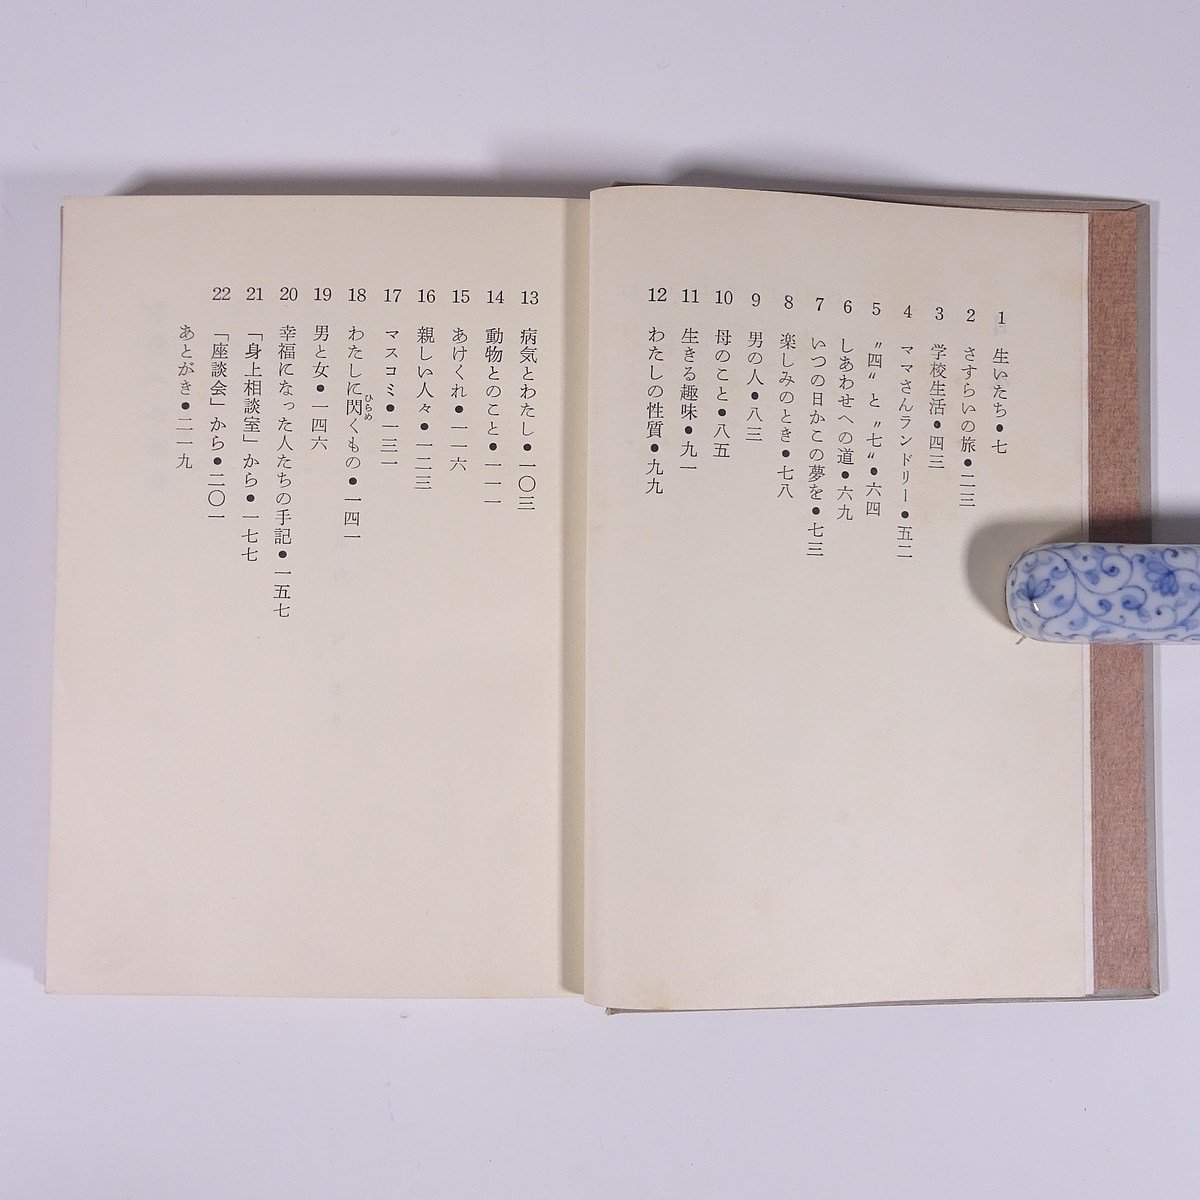 1 生いたち●七
2 さすらいの旅●二三
3 学校生活●四三
4 ママさんランドリー●五二
5 〝四〟と〝七〟●六四
6 しあわせへの道●六九
7 いつの日かこの夢を●七三
8 楽しみのとき●七八
9 男の人●八三
10 母のこと●八五
11 生きる趣味●九一
12 わたしの性質●九九
13 病気とわたし●一〇三
14 動物とのこと●一一一
15 あけくれ●一一六
16 親しい人々●一二三
17 マスコミ●一三一
18 わたしに閃くもの●一四一
ひらめ
19 男と女●一四六
20 幸福になった人たちの手記●一五七
21 「身上相談室」から●一七七
22 「座談会」から●二〇一
あとがき●二一九